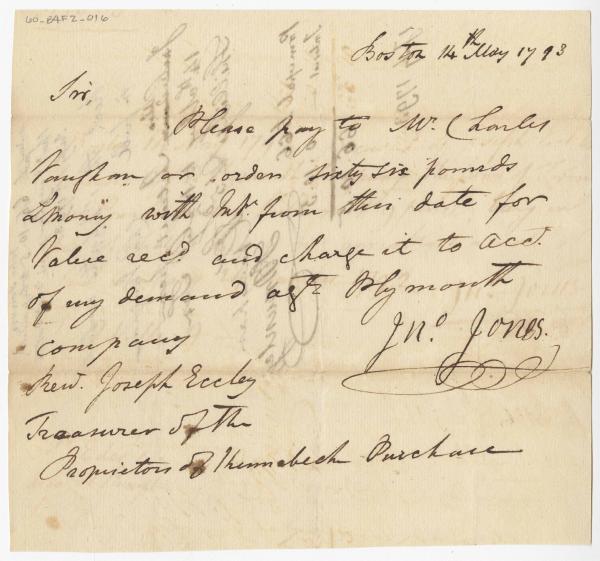 60-BAF2-016
Boston 14th May 1793
Sir,
Please pay to Mr. Charles
Vaughan or order sixty six pounds
LMoney with Intt. from this date for
Value recd. and charge it to acct.
of my demand agt. Plymouth
company
Jno. Jones.
Revd. Joseph Eccley
Treasurer of the
Proprietors of Kennebeck Purchase